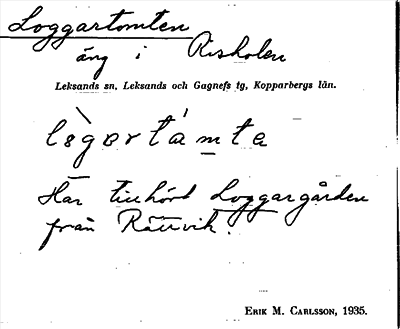 Loggartomten
äng i Risholen
Leksands sn, Leksands och Gagnefs tg, Kopparbergs län.
lògərtámta
Har tillhört Loggargården
från Rättvik.
ERIK M. CARLSSON, 1935.